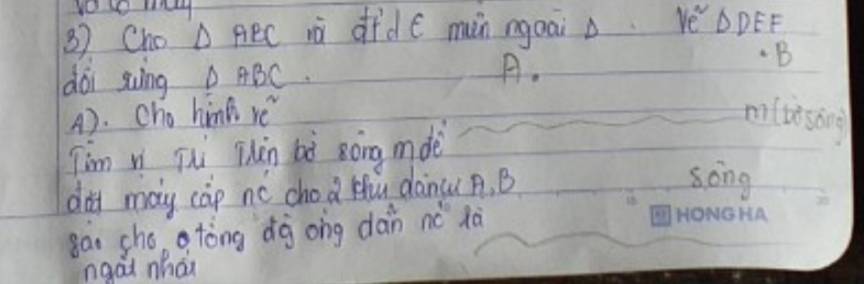 3) Cho Δ ABC và đtd E nằm ngoài Δ. Vẽ Δ DEF
đối xứng Δ ABC.
A.
B
4). Cho hình vẽ
m (bờ sông)
Tìm vị trí trên bờ sông m để
đặt máy cấp nc cho 2 khu dân cư A, B
sông
sao cho tổng độ ống dẫn nc là
HONG HA
ngắn nhất